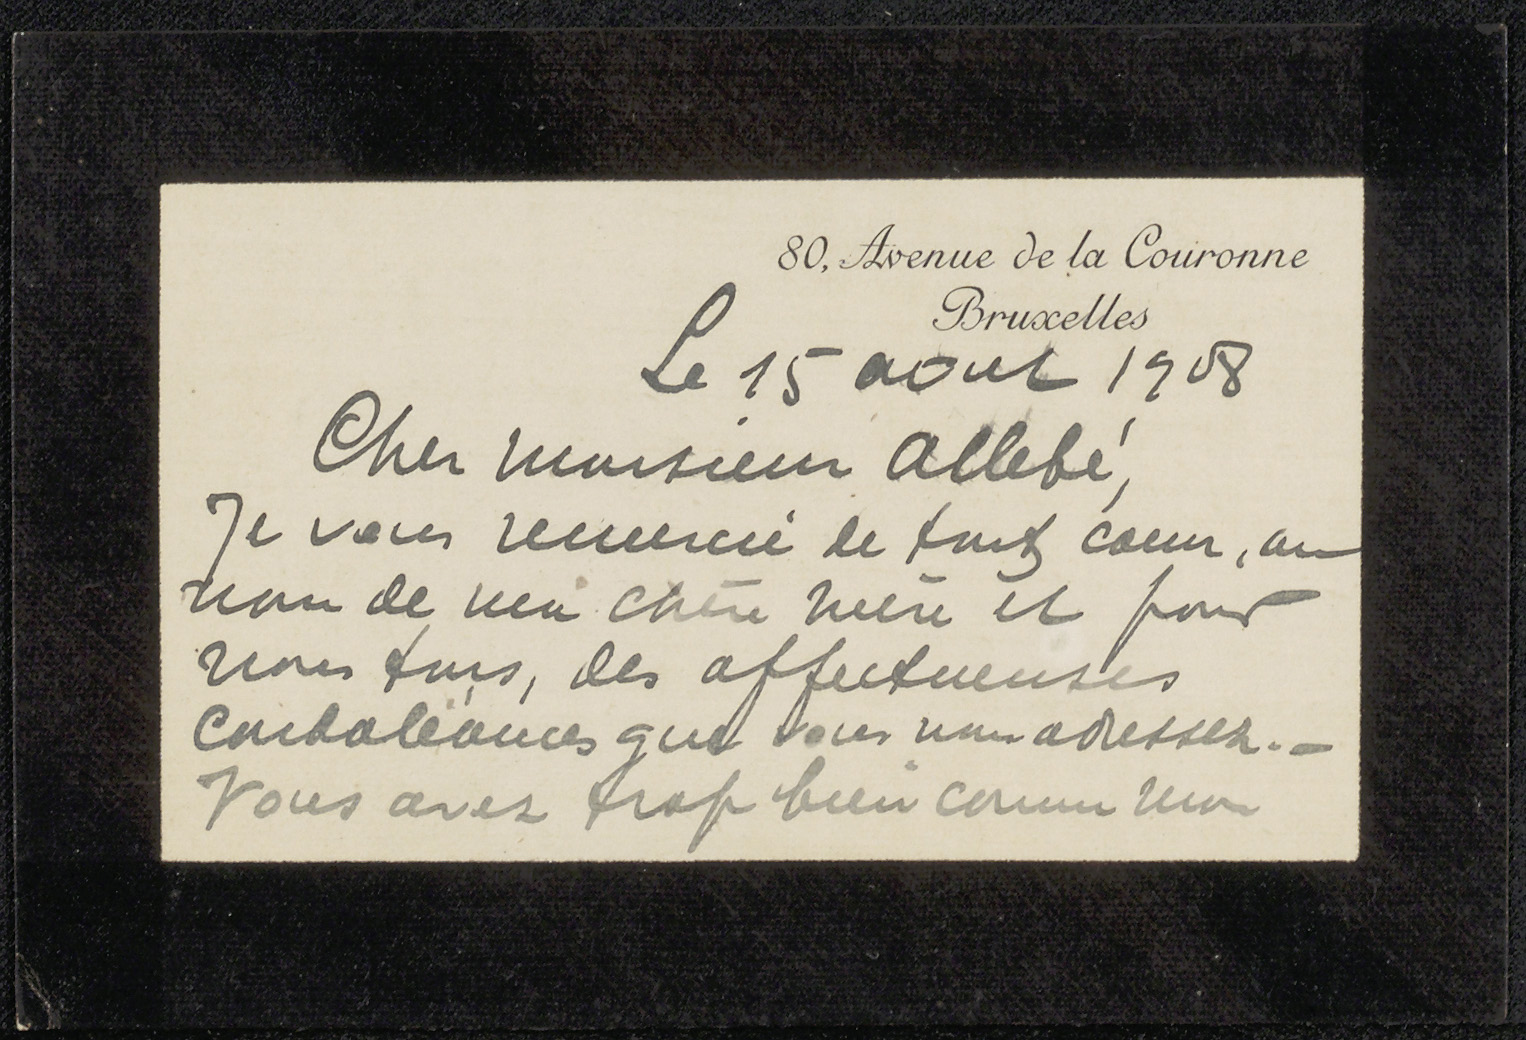 80, Avenue de la Couronne
Bruxelles
Le 15 aout 1908
Cher monsieur Allebé,
Je vous remercie de tout coeur, au
nom de ma chère mère et pour
nous tous, des affectueuses
condoléances que vous nous adressez. -
Vous avez trop bien connu mon